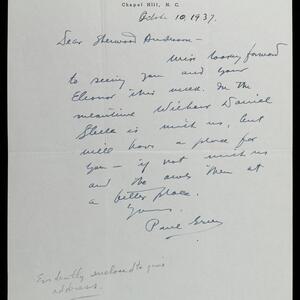 Chapel Hill, N. C.
October 10, 1937.
Dear Sherwood Anderson—
looking forward
to seeing you and your
Eleanor this week. In the
meantime Wilbur Daniel
Steele is with us, but
will have a place for
you — if not with us
and the then at
a better place.
Yours,
Paul Green
Evidently enclosed to give
address.